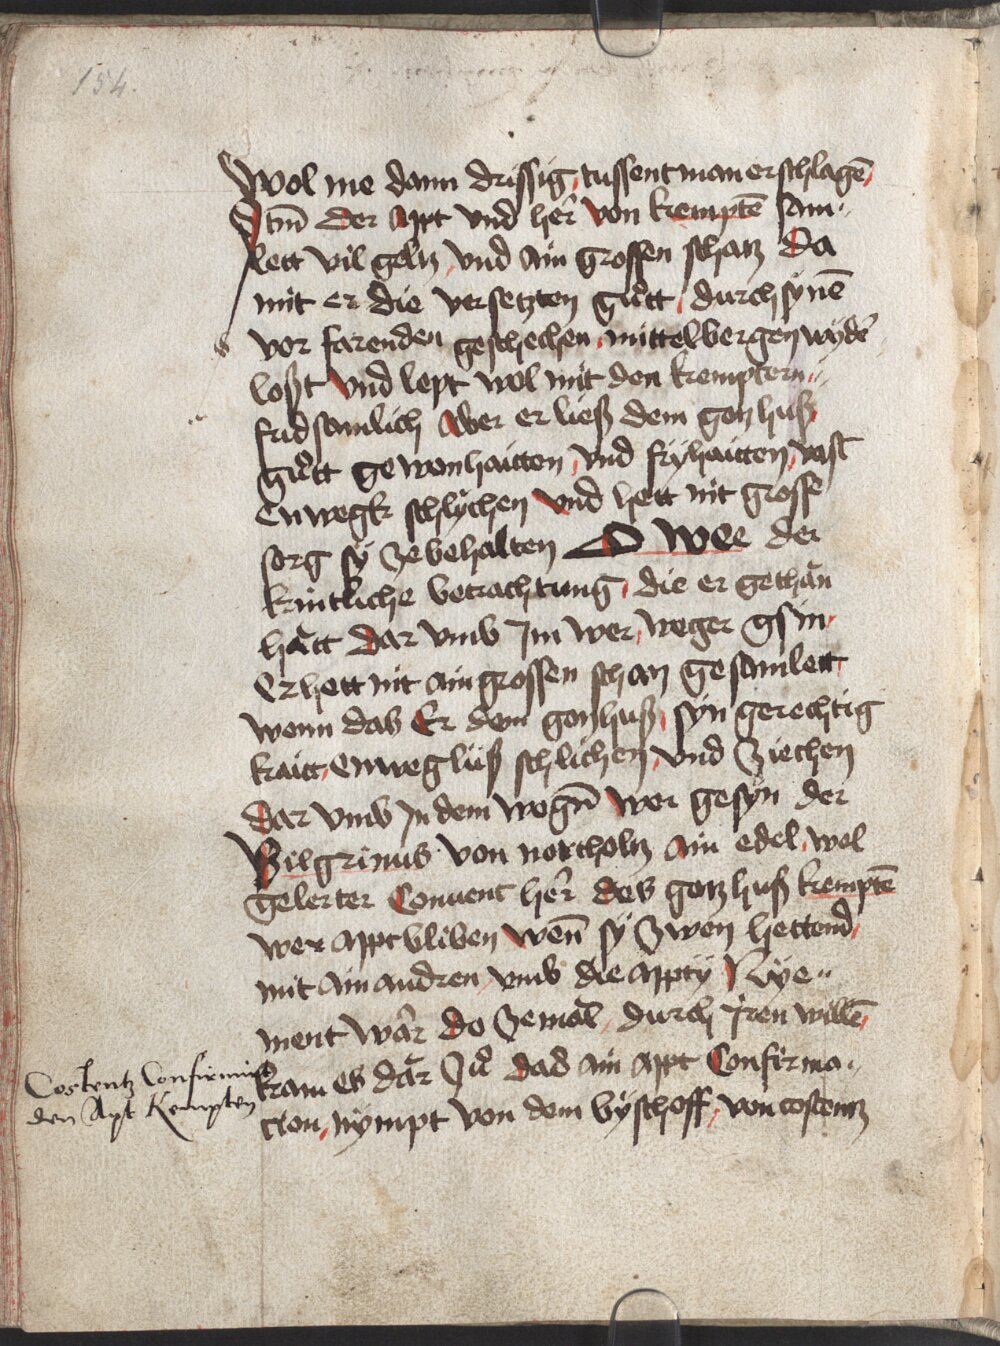 154.
Wol me dann drissig tussent man erschlagē
Itm̄ der Appt vnd her von kemptē sam¬
lett vil geltz vnd ain grossen schatz da
mit er die versetzten gůtt durch synē
vor farenden geschechen mittelbergen wyder
loßt vnd lept wol mit den kemptern
fridsamlich Aber er ließ dem gotzhuß
gůtt gewonhaitten vnd fryhaitten vast
enwegk schlychen vnd hett nit grosse
sorg sy ze behalten O wee der
kintliche betrachtung die er gethān
hātt dar vmb Im wer weger gsin
Er hett nit ain grossen schatz gesamlett
wenn das Er dem gotzhuß syn gerechtig
kaitt enweg lūß schlichen vnd ziechen
dar vmb In dem wegn̄ wer gesyn der
Bilgrinus von northoltz ain edel wol
gelerter Conuent her des gotzhuß kemptē
wer appt bliben wen̄ sy zwen hettend
mit ain andren vmb die apptÿ Rÿe¬
ment wār do zemāl durch Iren willē
kram es dār Zů das ain appt Confirma¬
cion nympt von dem byschoff von costentz
Costentz Confirmirt
den Apt Kempten